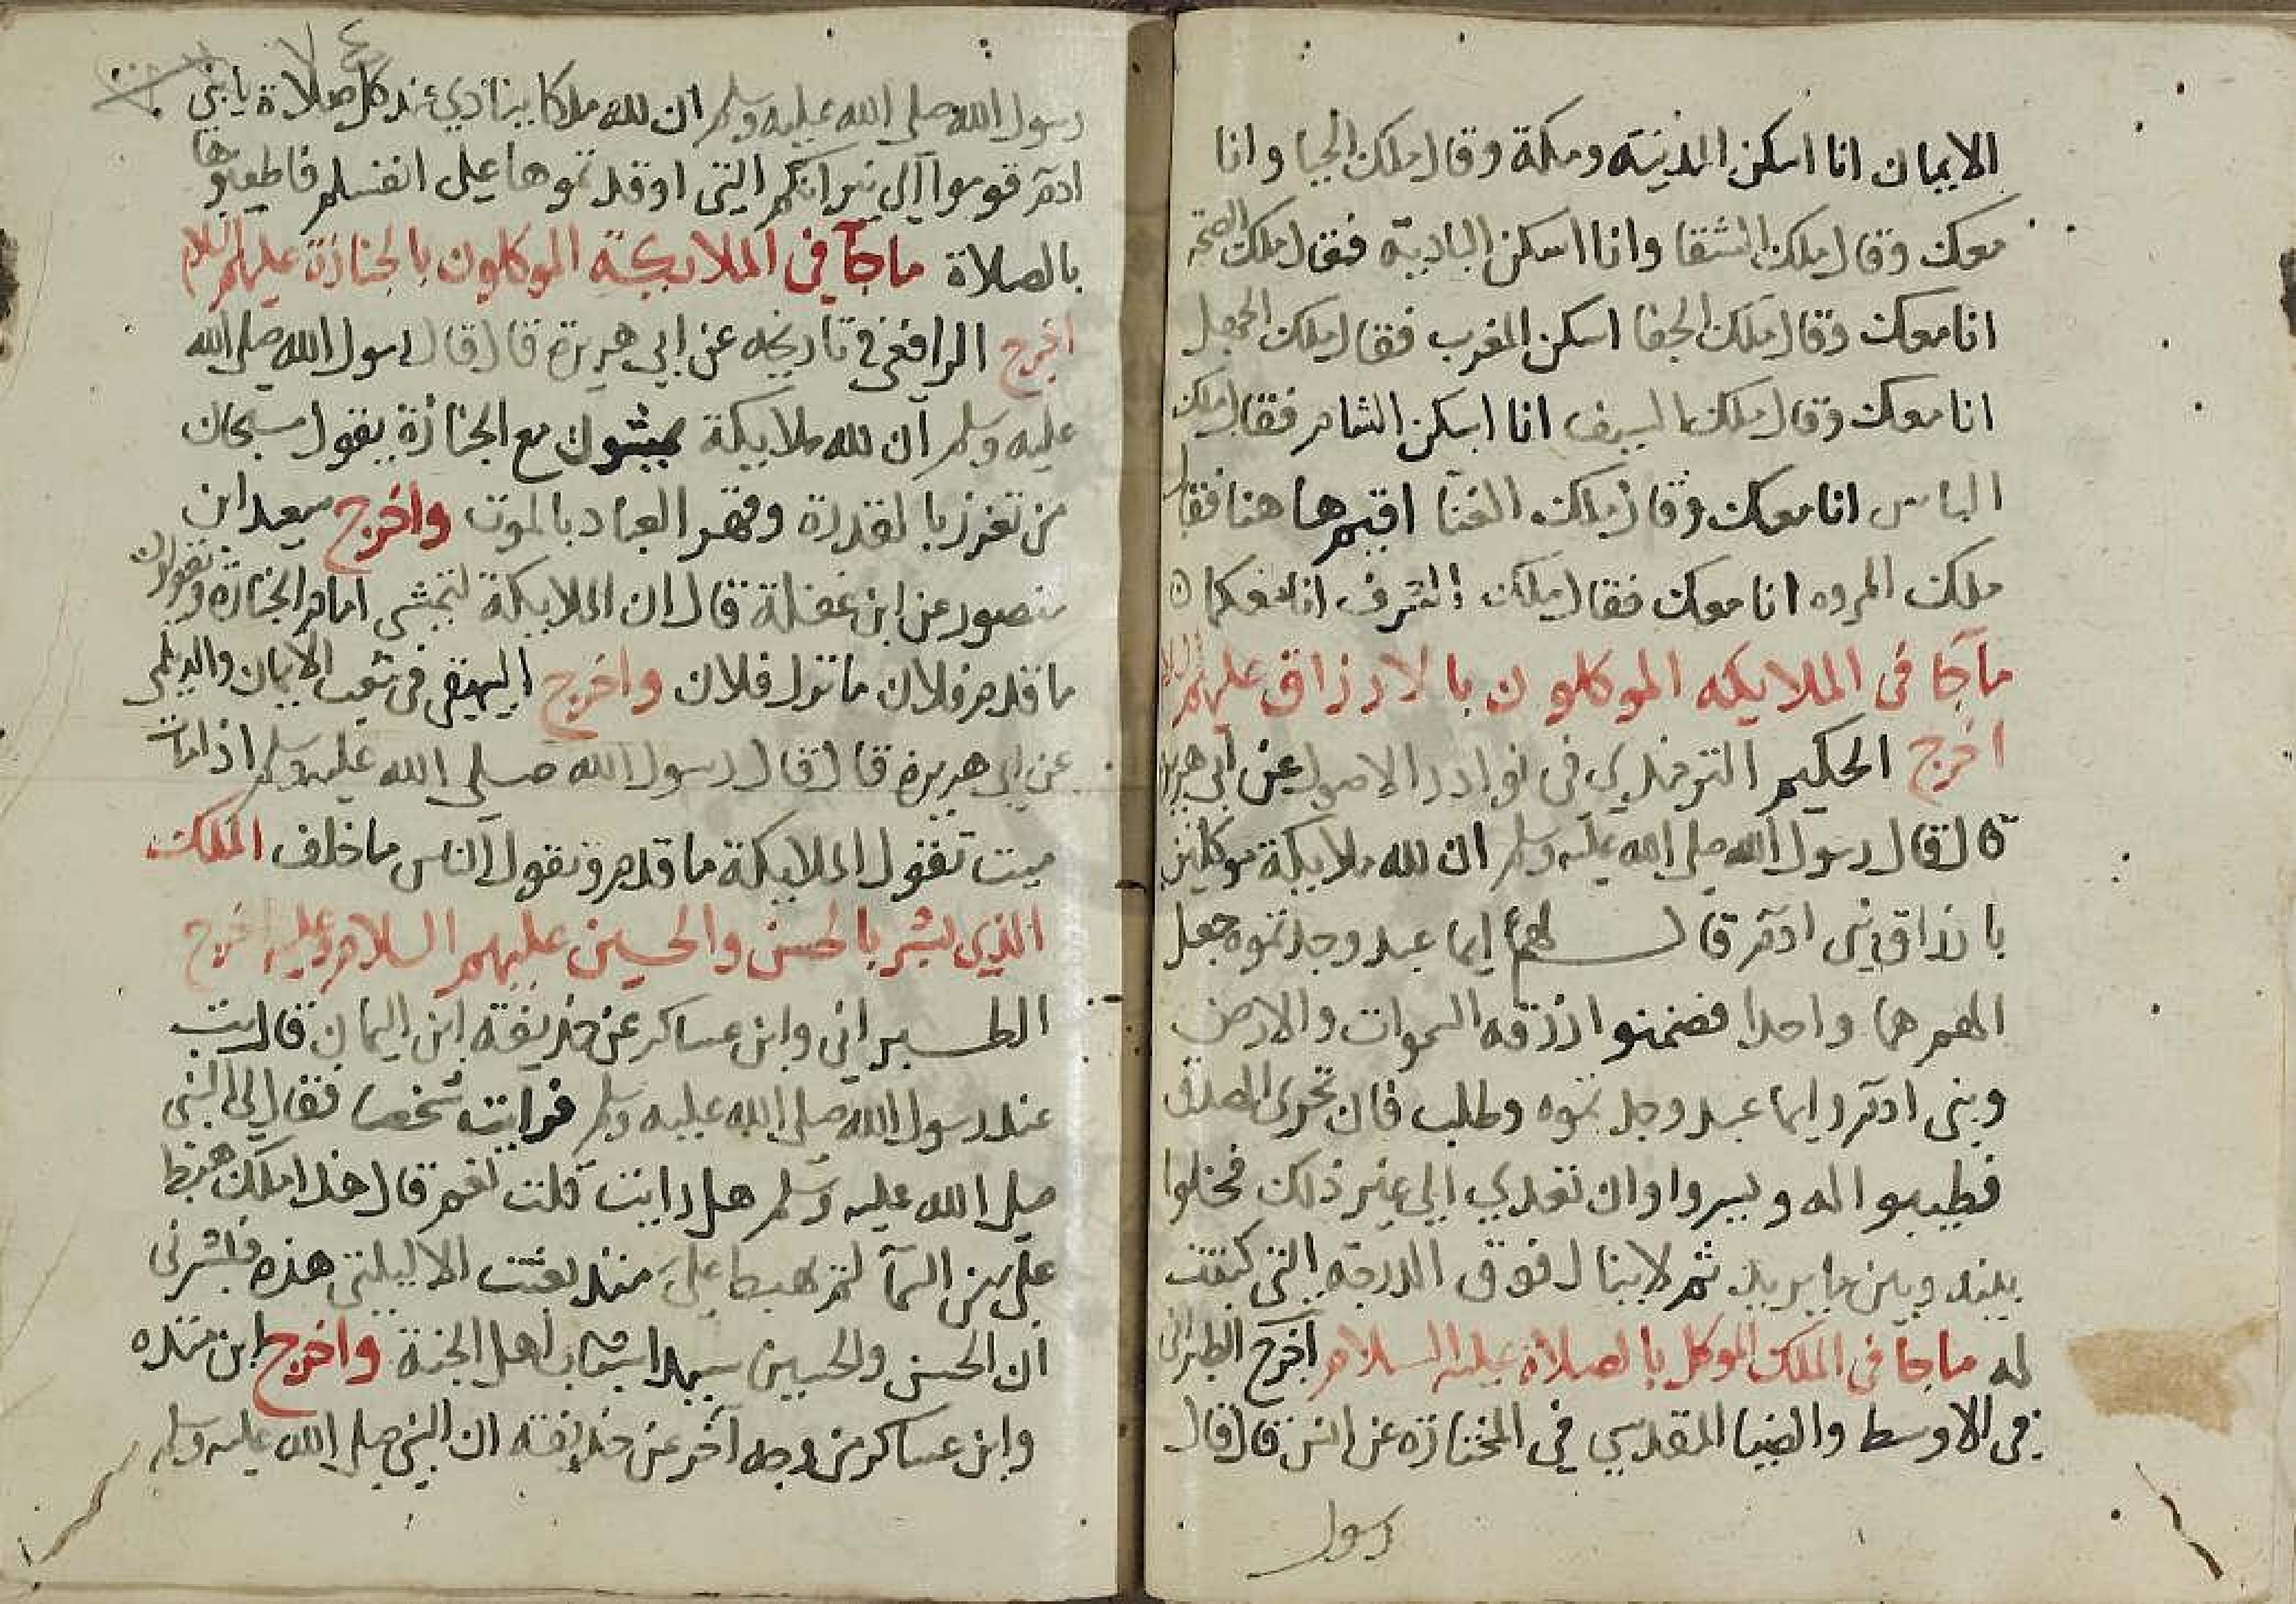 الايمان انا اسكن المدينه ومكة وقال ملك الحيا وانا
معك وقال ملك الشقا وانا اسكن البادية فقال ملك الصحة
انا معك وقال ملك الجفا اسكن المغرب فقال ملك الجهل
انا معك وقال ملك السيف انا اسكن الشام فقال ملك
الباس انا معك وقال ملك الغنا اقيم ها هنا فقال
ملك المروه انا معك فقال ملك الشرف انا معكما
ماجآ فى الملايكه الموكلون بالارزاق عليهم السلام
اخرج الحكيم الترمذي فى نوادر الاصول عن ابى هريرة
قال قال رسول الله صلى الله عليه وسلم ان لله ملايكة موكلين
بارزاق بنى ادم قال لهم ايما عبد وجدتموه جعل
الهم هما واحدا فضمنوا رزقه السموات والارض
وبنى ادم وايما عبد وجدتموه وطلب فان تحرى الصدق
فطيبوا له ويسروا وان تعدي الي غير ذلك فخلوا
بينه وبين ما يريد ثم لا ينال فوق الدرجة التى كتبت
له ماجآ فى الملك الموكل بالصلاة عليه السلام اخرج الطبرانى
فى الاوسط والضيا المقدسي في المختارة عن انس قال قال
رسول
رسول الله صلى الله عليه وسلم ان لله ملكا ينادي عند كل صلاة يا بنى
ادم قوموا الي نيرانكم التى اوقدتموها على انفسكم فاطفوها
بالصلاة ماجآ في الملايكة الموكلون بالجنازة عليهم السلام
اخرج الرافعى فى تاريخه عن ابي هريرة قال قال رسول الله صلى الله
عليه وسلم ان لله ملايكة يمشون مع الجنازة يقول سبحان
من تعزز بالقدرة وقهر العباد بالموت واخرج سعيد ابن
منصور عن ابن غفلة قال ان الملايكة لتمشى امام الجنازة ويقولان
ما قدم فلان ما ترك فلان واخرج البيهقى فى شعب الايمان والديلمى
عن ابي هريرة قال قال رسول الله صلى الله عليه وسلم اذا مات
ميت تقول الملايكة ما قدم وتقول الناس ما خلف الملك
الذي بشر بالحسن والحسين عليهم السلام وعليه اخرج
الطبرانى وابن عساكر عن حذيفة ابن اليمان قال بت
عند رسول الله صلى الله عليه وسلم فرايت شخصا فقال لي النبى
صلى الله عليه وسلم هل رايت قلت نعم قال هذا ملك هبط
علي من السمآ لم يهبط علي منذ بعثت الا ليلتى هذه فبشرنى
ان الحسن والحسين سيدا شباب اهل الجنة واخرج ابن منده
وابن عساكر من وجه آخر عن حذيفة ان النبي صلى الله عليه وسلم